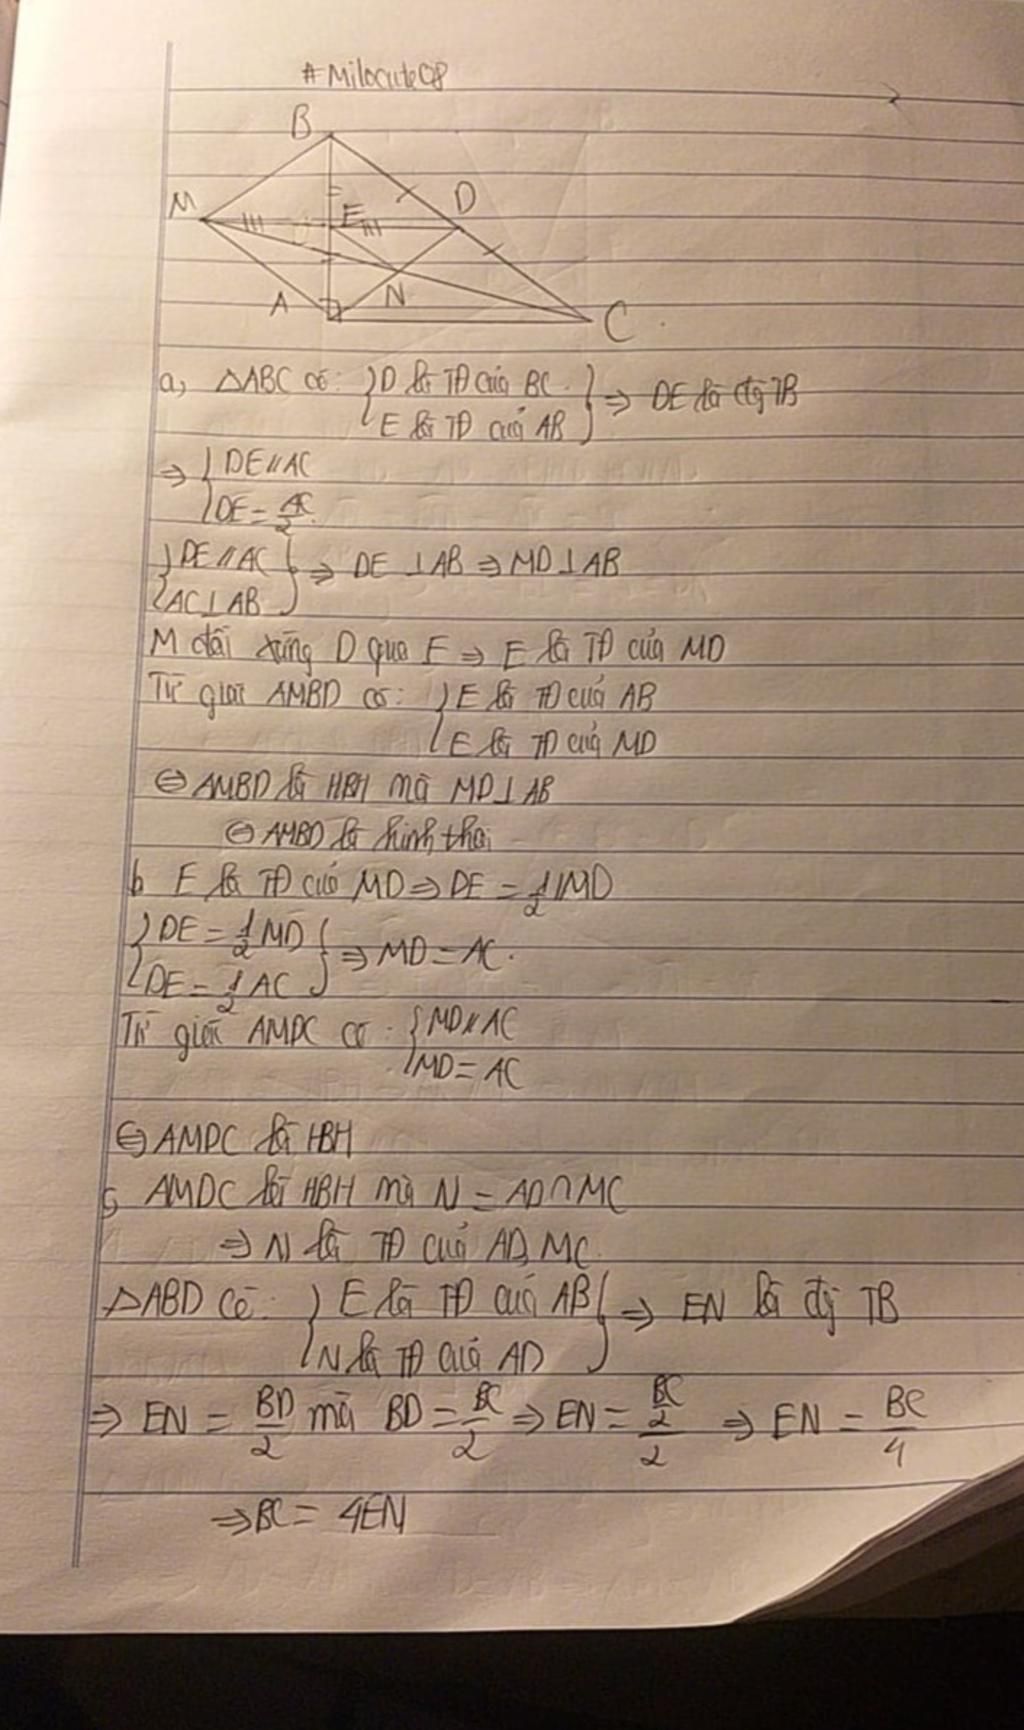 #Milocute08
B
M
E
D
A
N
C
a, △ABC có: { D là TĐ của BC
E là TĐ của AB } ⇒ DE là đg TB
⇒ { DE // AC
DE = AC/2
{ DE // AC
AC ⊥ AB } ⇒ DE ⊥ AB ⇒ MD ⊥ AB
M đối xứng D qua E ⇒ E là TĐ của MD
Tứ giác AMBD có: { E là TĐ của AB
E là TĐ của MD
⇔ AMBD là HBH mà MD ⊥ AB
⇔ AMBD là hình thoi
b E là TĐ của MD ⇒ DE = 1/2 MD
{ DE = 1/2 MD
DE = 1/2 AC } ⇒ MD = AC.
Tứ giác AMDC có: { MD // AC
MD = AC
⇔ AMDC là HBH
c, AMDC là HBH mà N = AD ∩ MC
⇒ N là TĐ của AD, MC
△ABD có: { E là TĐ của AB
N là TĐ của AD } ⇒ EN là đg TB
⇒ EN = BD/2 mà BD = BC/2 ⇒ EN = (BC/2)/2 ⇒ EN = BC/4
⇒ BC = 4EN